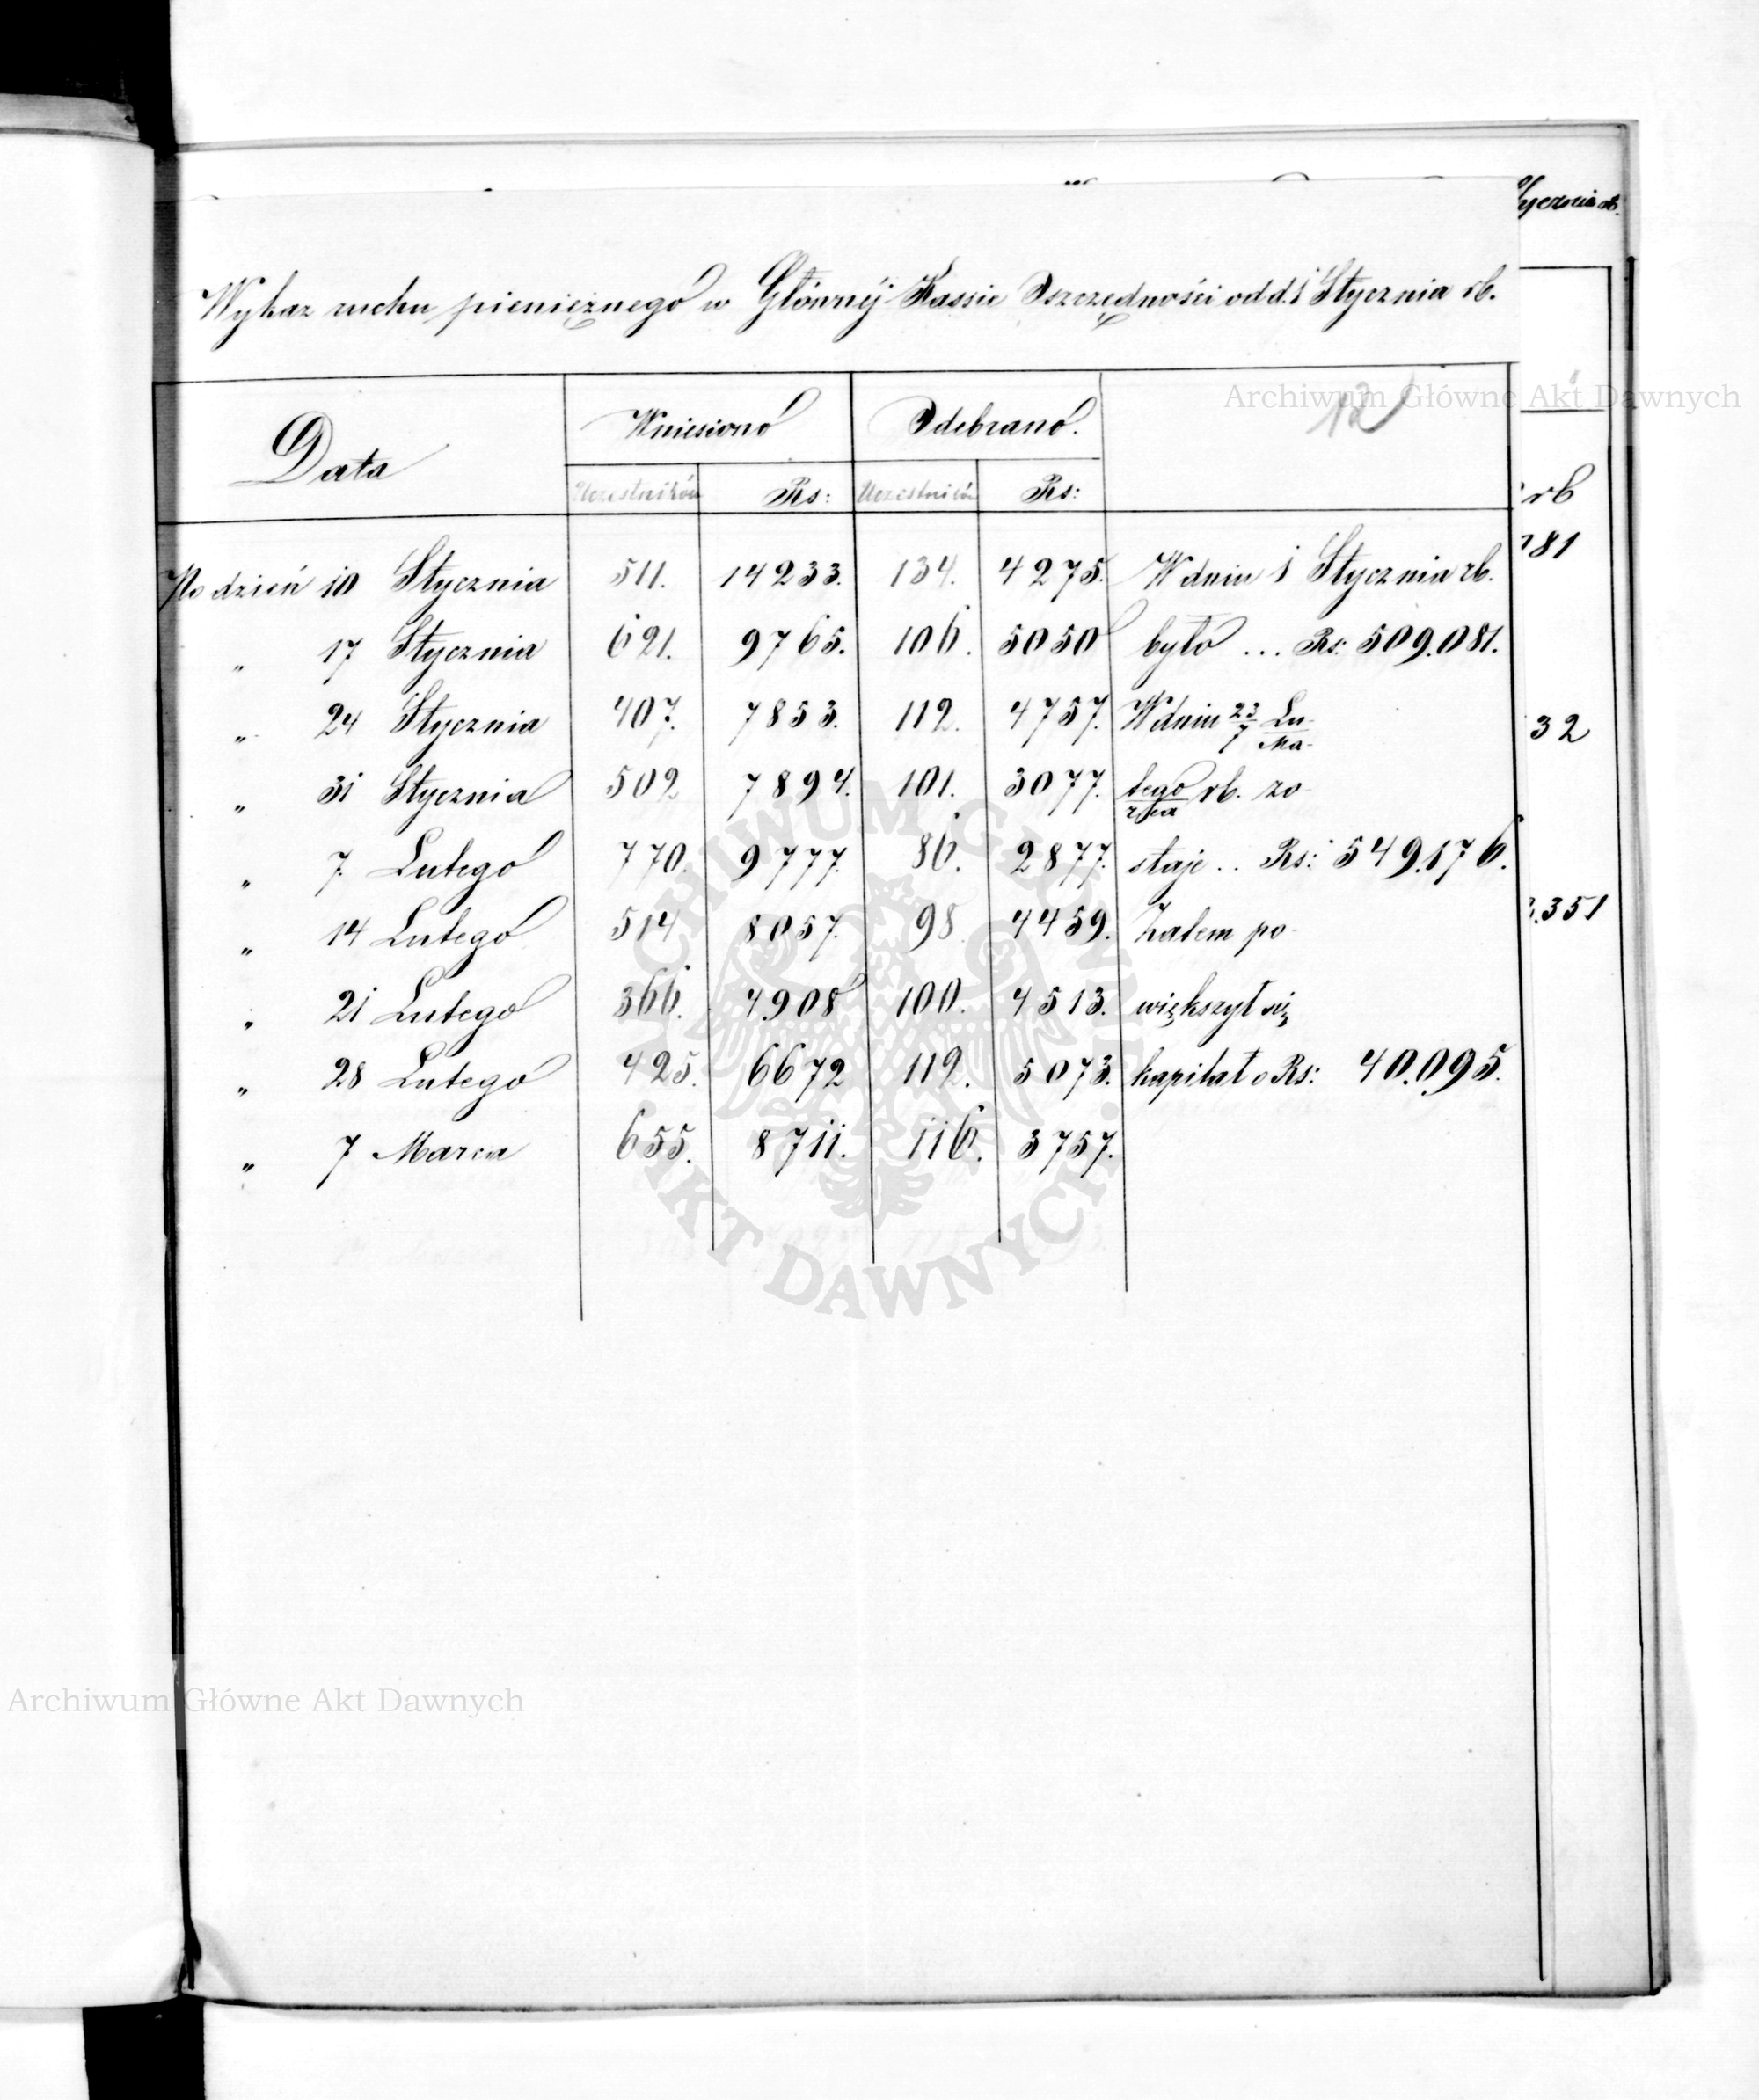 Stycznia rb.
Wykaz ruchu pieniężnego w Głównéj Kassie Oszczędności od d. 1 Stycznia rb.
Archiwum Główne Akt Dawnych
12
Data Wniesiono Odebrano.
Uczestników Rs: Uczestników Rs:
rb
Po dzień 10 Stycznia 511. 14233. 134. 4275. W dniu 1 Stycznia rb.
81
" 17 Stycznia 621. 9765. 106. 5050 było ... Rs: 509.081.
" 24 Stycznia 407. 7853. 112. 4757. W dniu 23/7 Lu-/Ma-
32
" 31 Stycznia 502 7894. 101. 3077. tego/rca rb. zo-
" 7. Lutego 770. 9777. 86. 2877. staje .. Rs: 549.176.
" 14 Lutego 514 8057. 98 4459. Zatem po-
.351
" 21 Lutego 366. 4908 100. 4513. większył się
" 28 Lutego 425. 6672 112. 5073. kapitał o Rs: 40.095.
" 7 Marca 655. 8711. 116. 3757.
ARCHIWUM GŁÓWNE AKT DAWNYCH
Archiwum Główne Akt Dawnych